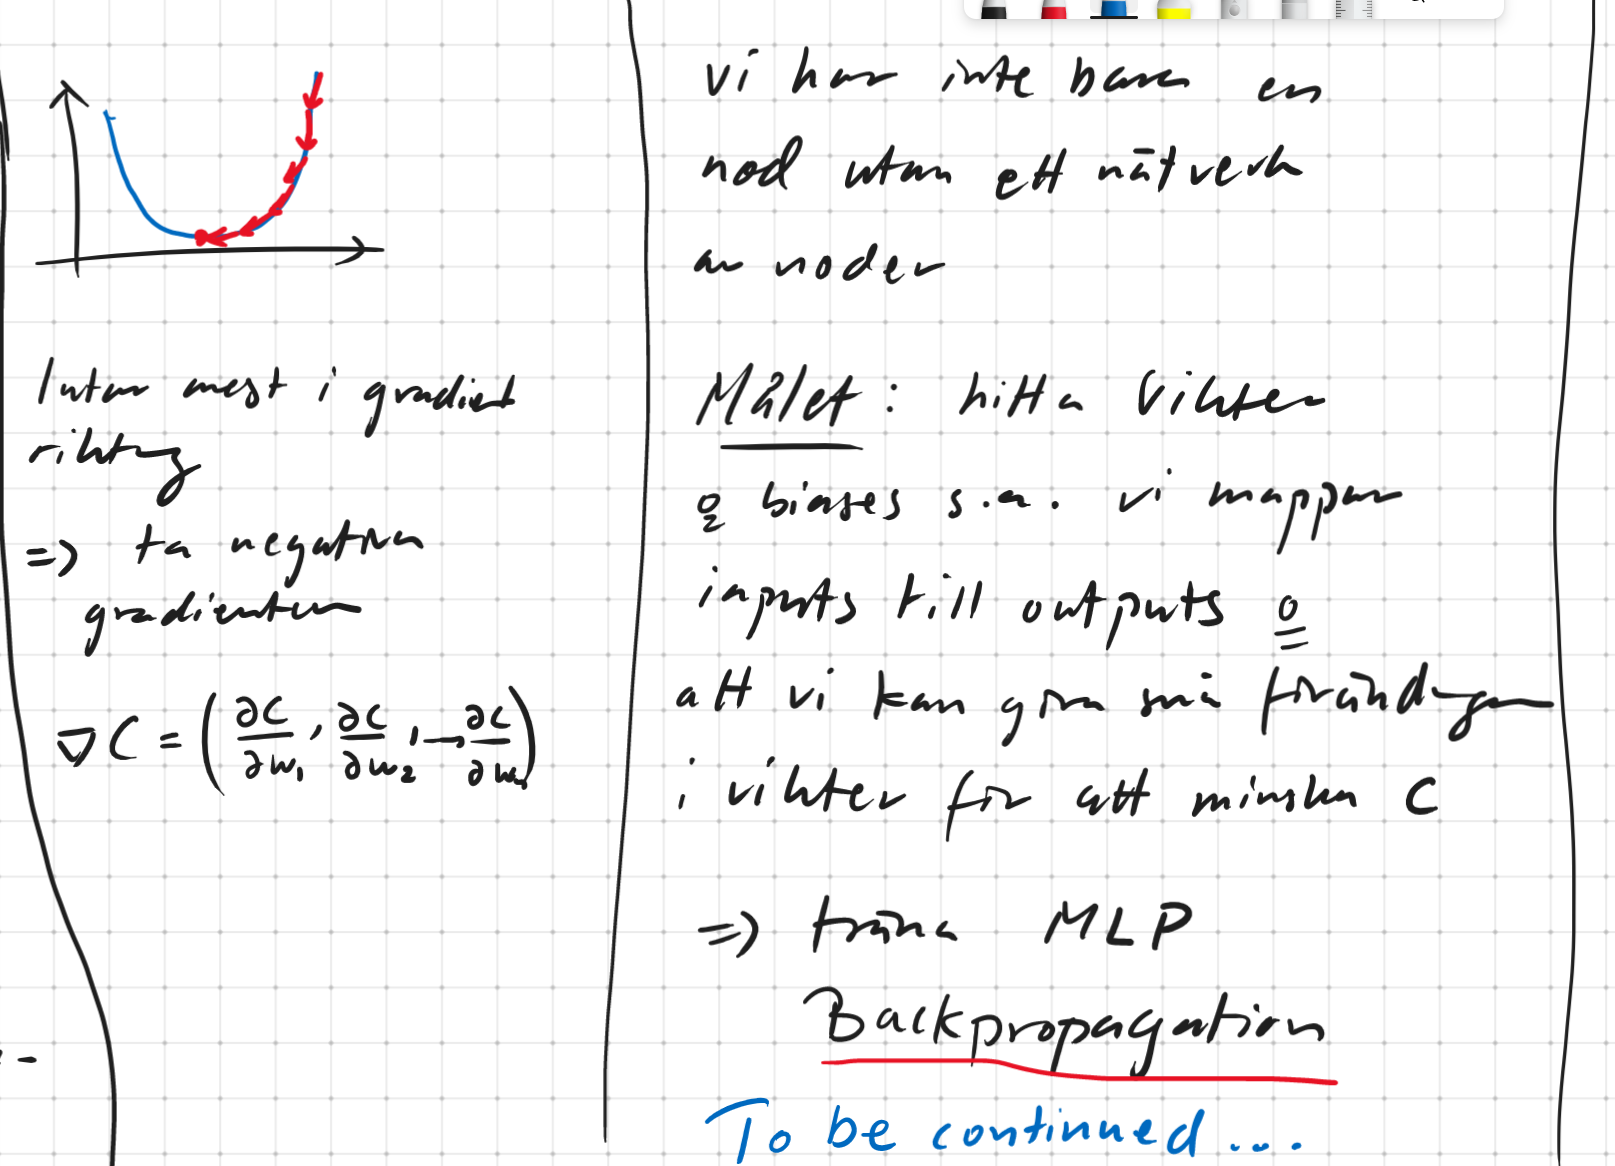 lutar mest i gradient
riktning
=> ta negativa
gradienten
∇C = (∂C/∂w₁, ∂C/∂w₂, ... ∂C/∂wₙ)
vi har inte bara en
nod utan ett nätverk
av noder
Målet: hitta vikter
o biases s.a. vi mappar
inputs till outputs o
att vi kan göra små förändringar
i vikter för att minska C
=> träna MLP
Backpropagation
To be continued...